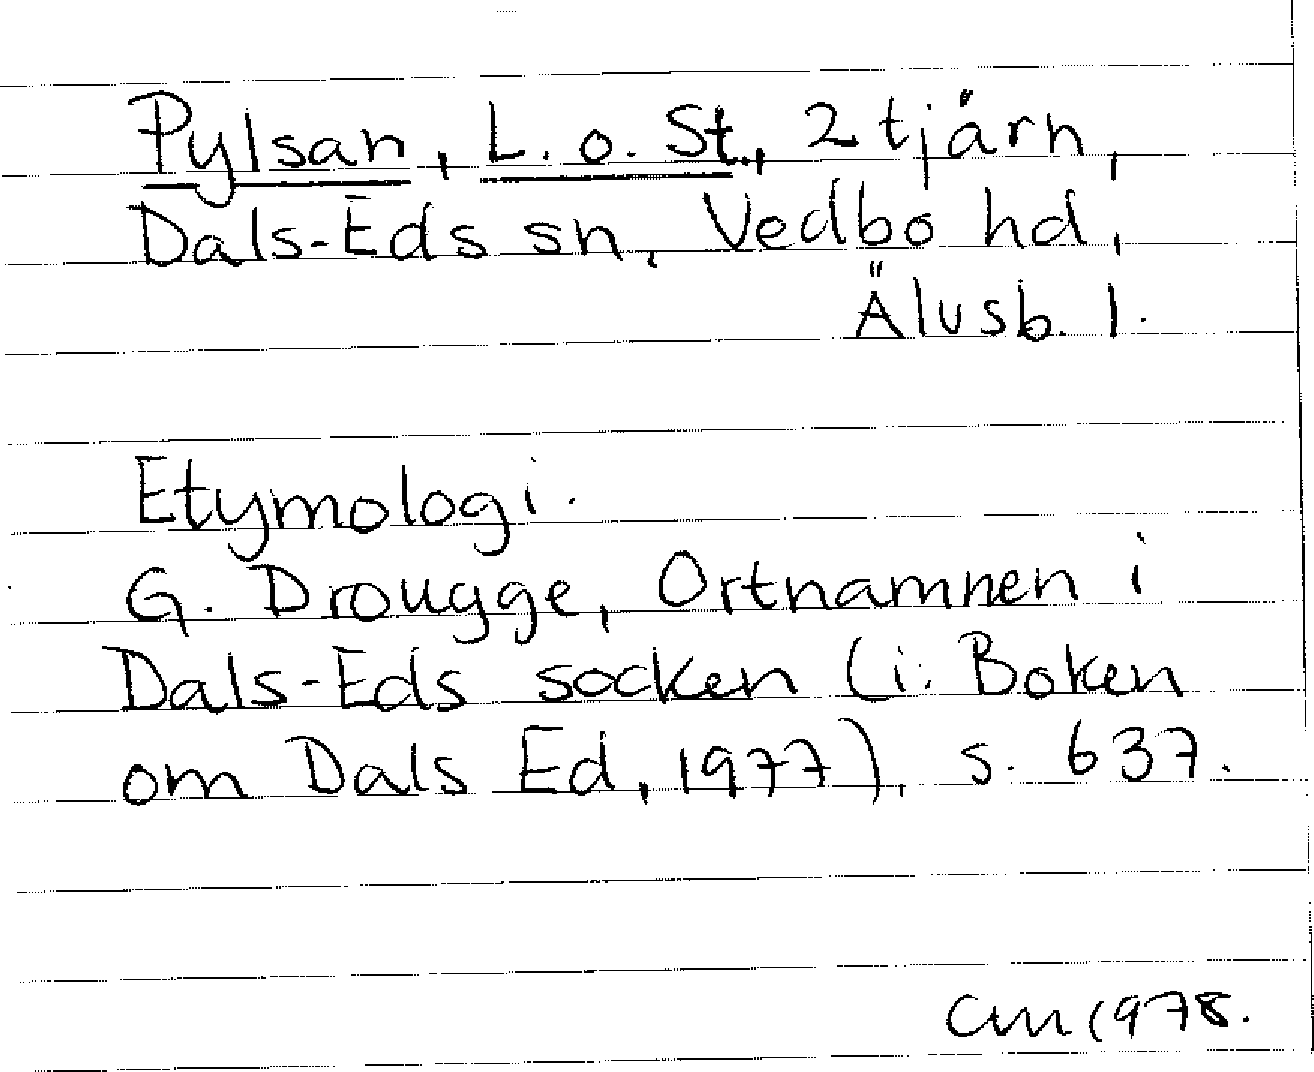 Pylsan, L. o. St., 2 tjärn,
Dals-Eds sn, Vedbo hd,
Älvsb. l.
Etymologi.
G. Drougge, Ortnamnen i
Dals-Eds socken (i: Boken
om Dals Ed, 1977), s. 637.
CM 1978.